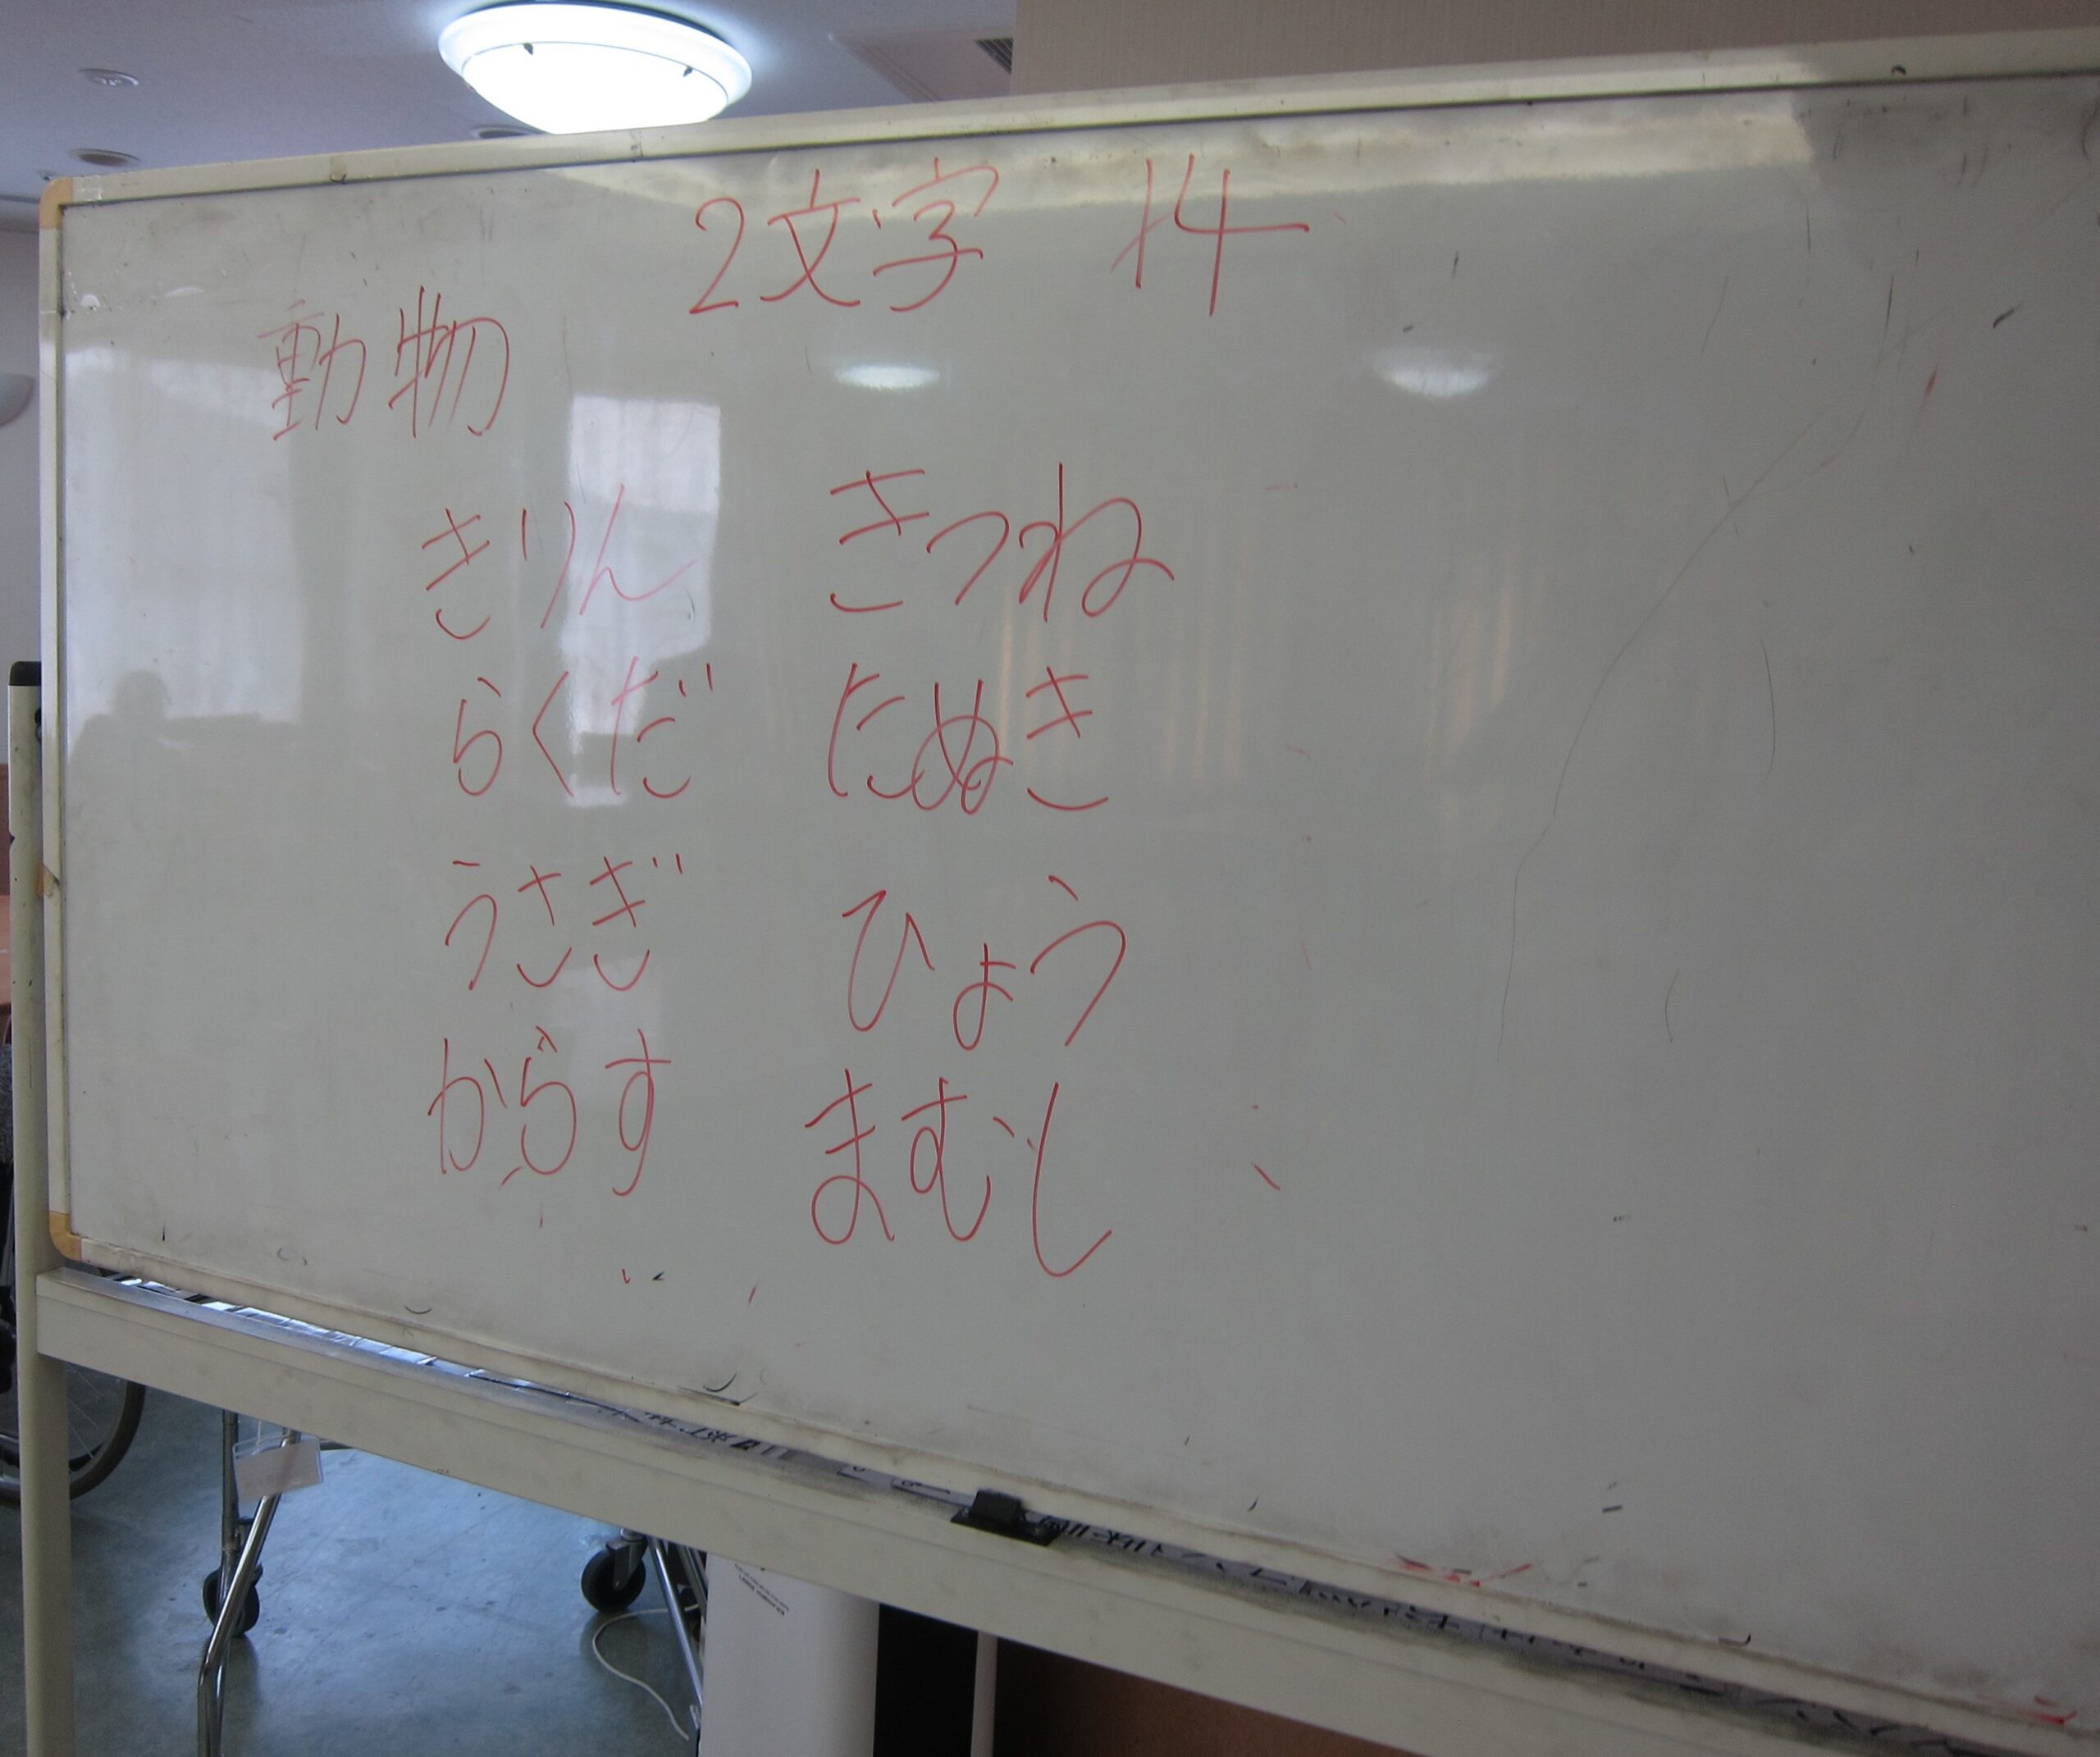 2文字
動物
きりん きつね
らくだ たぬき
うさぎ ひょう
からす まむし